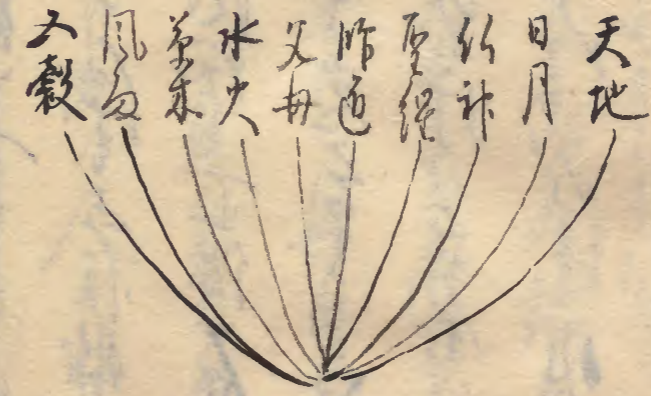 天地
日月
仏神
聖経
師匠
父母
水火
草木
風雨
五穀